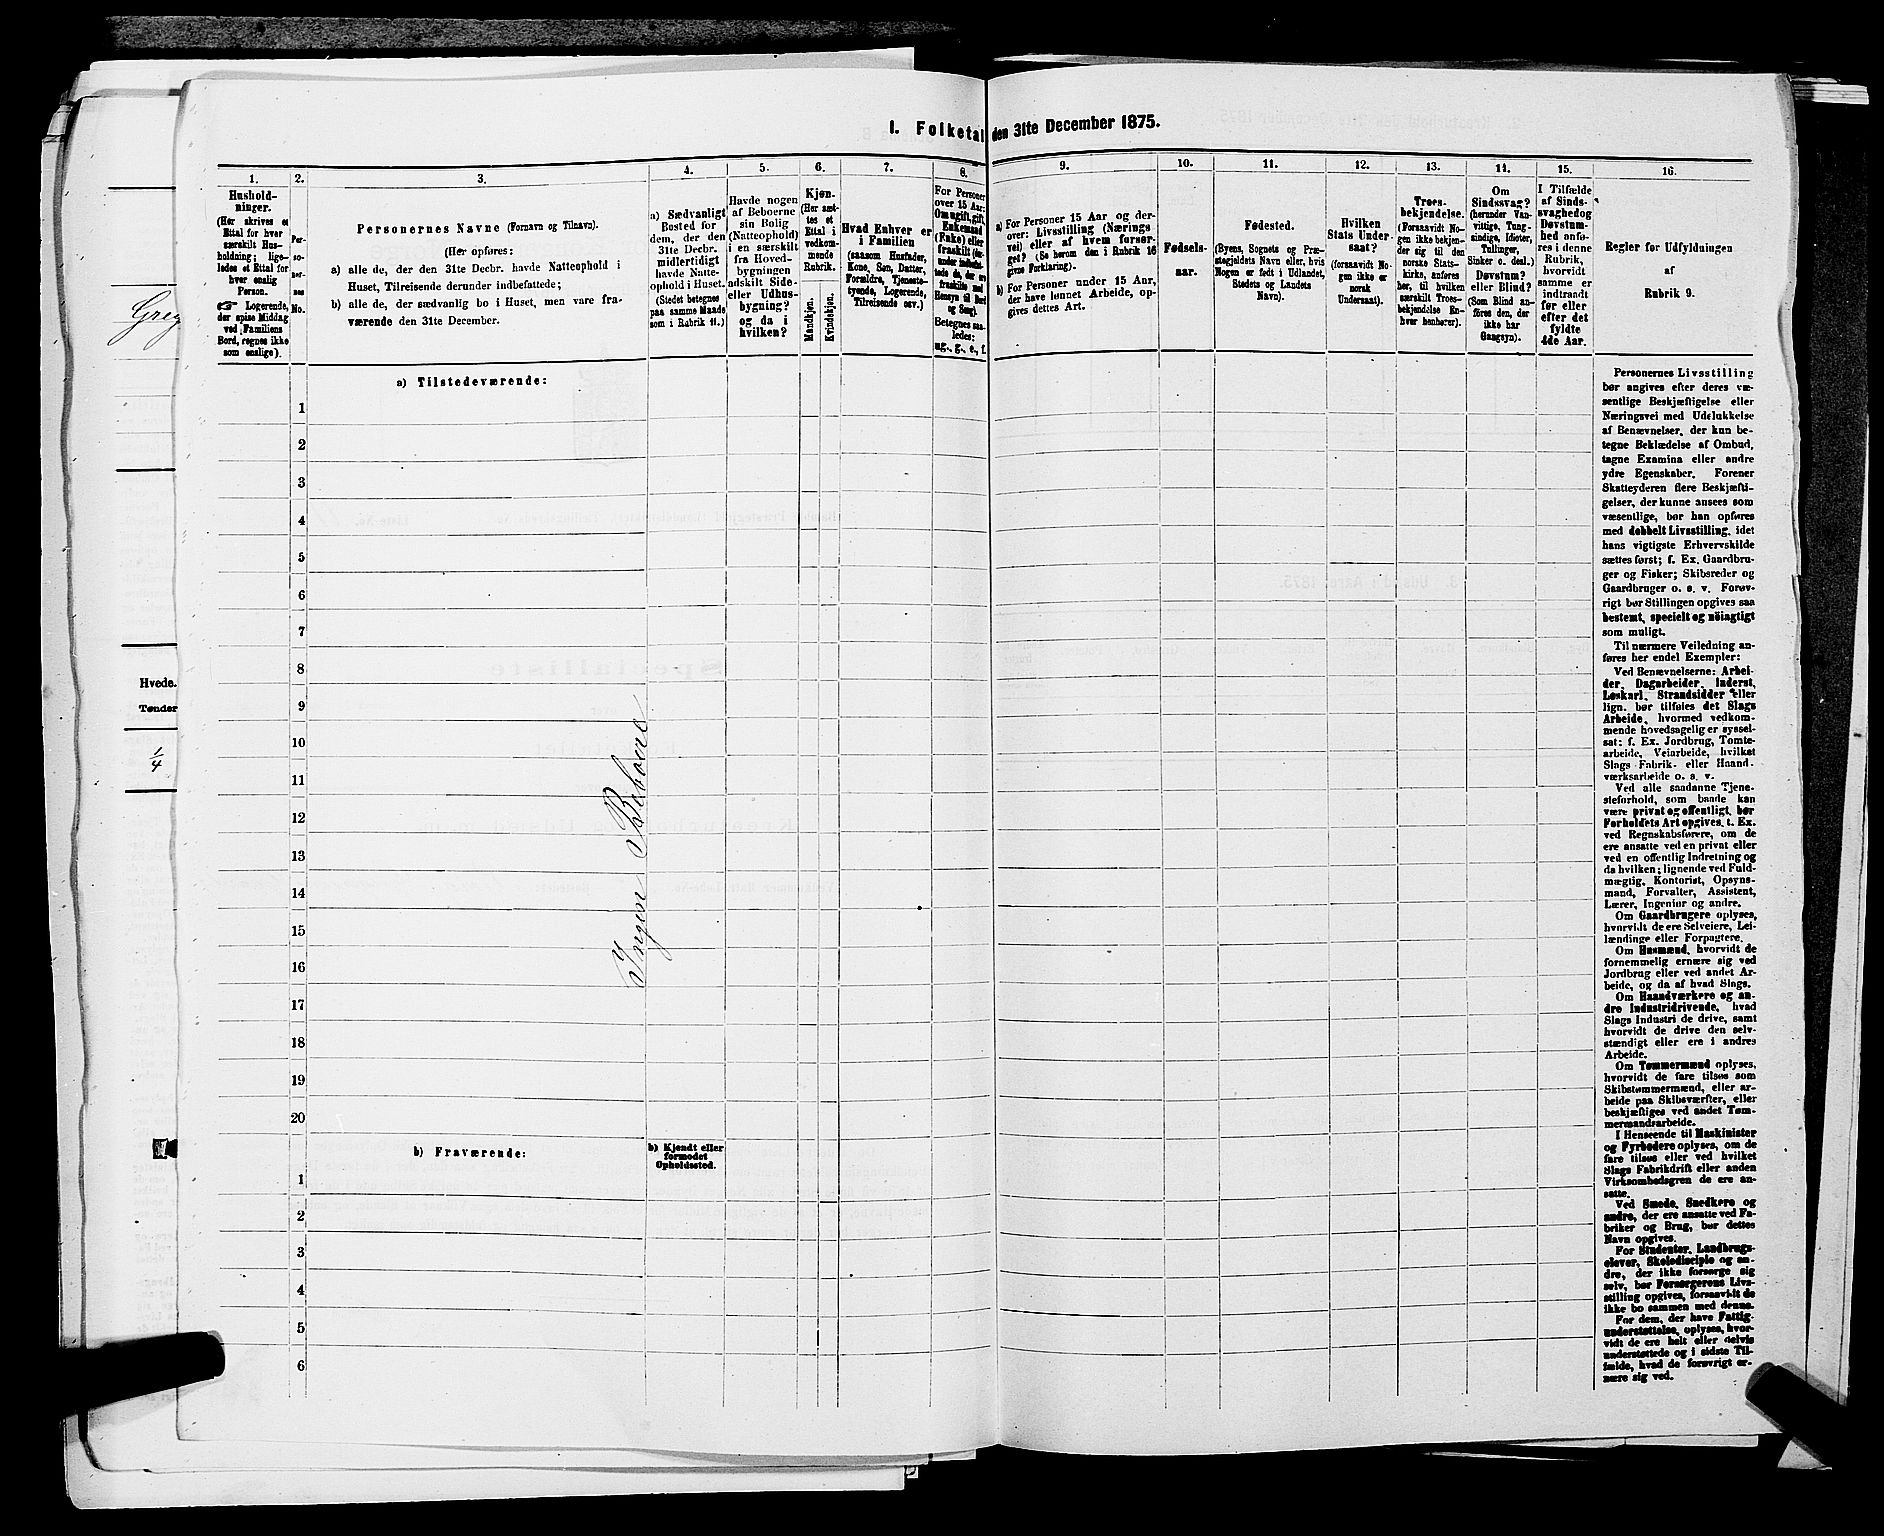 Greg
Hvede.
Tønder
1/4
I. Folketal den 31te December 1875.
1.
Hushold-
ninger.
(Her skrives et
Ettal for hver
særskilt Hus-
holdning; lige-
ledes et Ettal for
hver enslig
Person.
☞ Logerende,
der spise Middag
ved Familiens
Bord, regnes ikke
som enslige).
2.
Per-
so-
ner-
nes
No.
3.
Personernes Navne (Fornavn og Tilnavn).
(Her opføres:
a) alle de, der den 31te Decbr. havde Natteophold i
Huset, Tilreisende derunder indbefattede;
b) alle de, der sædvanlig bo i Huset, men vare fra-
værende den 31te December.
4.
a) Sædvanligt
Bosted for
dem, der den
31te Decbr.
midlertidigt
havde Natte-
ophold i Huset.
(Stedet betegnes
paa samme Maade
som i Rubrik 11.)
5.
Havde nogen
af Beboerne
sin Bolig
(Natteophold)
i en særskilt
fra Hoved-
bygningen
adskilt Side-
eller Udhus-
bygning?
og da i
hvilken?
6.
Kjøn.
(Her sæt-
tes et
Ettal i
vedkom-
mende
Rubrik.
Mandkjøn.
Kvindekjøn.
7.
Hvad Enhver er
i Familien
(saasom Husfader,
Kone, Søn, Datter,
Forældre, Tjeneste-
tyende, Logerende,
Tilreisende osv.)
8.
For Personer
over 15 Aar:
Om ugift, gift,
Enkemand
(Enke) eller
fraskilt (der-
under indbefat-
tede de, der ere
fraskilte med
Hensyn til Bord
og Seng).
Betegnes saa-
ledes:
ug., g., e., f.
9.
a) For Personer 15 Aar og der-
over: Livsstilling (Nærings-
vei) eller af hvem forsør-
get? (Se herom den i Rubrik 16
givne Forklaring).
b) For Personer under 15 Aar,
der have lønnet Arbeide, op-
gives dettes Art.
10.
Fødsels-
aar.
11.
Fødested.
(Byens, Sognets og Præ-
stegjeldets Navn eller, hvis
Nogen er født i Udlandet,
Stedets og Landets
Navn).
12.
Hvilken
Stats Under-
saat?
(forsaavidt No-
gen ikke er
norsk
Undersaat).
13.
Troes-
bekjendelse.
(Forsaavidt No-
gen ikke bekjen-
der sig til den
norske Stats-
kirke, anføres
her, til hvilken
særskilt Troes-
bekjendelse En-
hver henhører).
14.
Om
Sindssvag?
(herunder Van-
vittige, Tung-
sindige, Idioter,
Tullinger,
Sinker o. desl.)
Døvstum?
eller Blind?
(Som Blind an-
føres den, der
ikke har
Gangsyn).
15.
I Tilfælde
af Sinds-
svaghed og
Døvstum-
hed anfø-
res i denne
Rubrik,
hvorvidt
samme er
indtraadt
før eller
efter det
fyldte
4de Aar.
16.
Regler før Udfyldningen
af
Rubrik 9.
a) Tilstedeværende:
1
2
3
4
5
6
7
8
9
10
11
12
13
14
15
16
17
18
19
20
Ingen Beboere
b) Fraværende:
b) Kjendt eller
formodet
Opholdssted.
1
2
3
4
5
6
Personernes Livsstilling
bør angives efter deres væ-
sentlige Beskjæftigelse eller
Næringsvei med Udelukkelse
af Benævnelser, der kun be-
tegne Beklædelse af Ombud,
tagne Examina eller andre
ydre Egenskaber. Forener
Skatteyderen flere Beskjæfti-
gelser, der kunne ansees som
væsentlige, bør han opføres
med dobbelt Livsstilling, idet
hans vigtigste Erhvervskilde
sættes først; f. Ex. Gaardbru-
ger og Fisker; Skibsreder og
Gaardbruger o. s. v. Forøv-
rigt bør Stillingen opgives saa
bestemt, specielt og nöiagtigt
som muligt.
Til nærmere Veiledning an-
føres her endel Exempler:
Ved Benævnelserne: Arbei-
der, Dagarbeider, Inderst,
Løskarl, Strandsidder eller
lign. bør tilføles det Slags
Arbeide, hvormed vedkom-
mende hovedsagelig er syssel-
sat: f. Ex. Jordbrug, Tomte-
arbeide, Veiarbeide, hvilket
Slags Fabrik- eller Haand-
værksarbeide o. s. v.
Ved alle saadanne Tjene-
steforhold, som baade kan
være privat og offentligt, bør
Forholdets Art opgives, t. Ex.
ved Regnskabsførere, om de
ere ansatte ved en privat eller
ved en offentlig Indretning og
da hvilken; lignende ved Fuld-
mægtig, Kontorist, Opsyns-
mand, Forvalter, Assistent,
Lærer, Ingeniør og andre.
Om Gaardbrugere oplyses,
hvorvidt de ere Selveiere, Lei-
lændinge eller Forpagtere.
Om Husmænd, hvorvidt de
fornemmelig ernære sig ved
Jordbrug eller ved andet Ar-
beide, og da af hvad Slags.
Om Haandværkere og an-
dre Industridrivende, hvad
Slags Industri de drive, samt
hvorvidt de drive den selv-
stændigt eller ere i andres
Arbeide.
Om Tømmermænd oplyses,
hvorvidt de fare tilsøs som
Skibstømmermænd, eller ar-
beide paa Skibsværfter, eller
beskjæftiges ved andet Tøm-
mermandsarbeide.
I Henseende til Maskinister
og Fyrbødere oplyses, om de
fare tilsøs eller ved hvilket
Slags Fabrikdrift eller anden
Virksomhedsgren de ere an-
satte.
Ved Smede, Snedkere og
andre, der ere ansatte ved Fa-
briker og Brug, bør dettes
Navn opgives.
For Studenter, Landbrugs-
elever, Skoledisciple og an-
dre, der ikke forsørge sig
selv, bør Forsørgerens Livs-
stilling opgives, forsaavidt de
ikke bo sammen med denne.
For dem, der have Fattig-
understøttelse, oplyses, hvor-
vidt de ere helt eller delvis
understøttede og i sidste Til-
fælde, hvad de forøvrigt er-
nære sig ved.